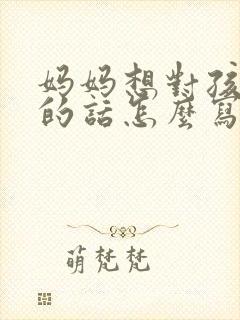 妈妈想對孩
的話怎麼寫
萌梵梵